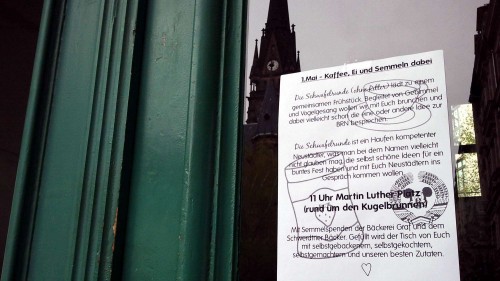 1.Mai - Kaffee, Ei und Semmeln dabei
Die Schwafelrunde (ehm.Ritter) lädt zu einem
gemeinsamen Frühstück. Begleitet von Gebimmel
und Vogelgesang wollen wir mit Euch brunchen und
dabei vielleicht schon die eine oder andere Idee zur
BRN besprechen.
Die Schwafelrunde ist ein Haufen kompetenter
Neustädter, was man bei dem Namen vielleicht
nicht glauben mag, die selbst schöne Ideen für ein
buntes Fest haben und mit Euch Neustädtern ins
Gespräch kommen wollen.
11 Uhr Martin Luther Platz
(rund um den Kugelbrunnen)
Mit Semmelspenden der Bäckerei Graf und dem
Schwerdtner Bäcker. Gefüllt wird der Tisch von Euch
mit selbstgebackenem, selbstgekochtem,
selbstgemachtem und unseren besten Zutaten.